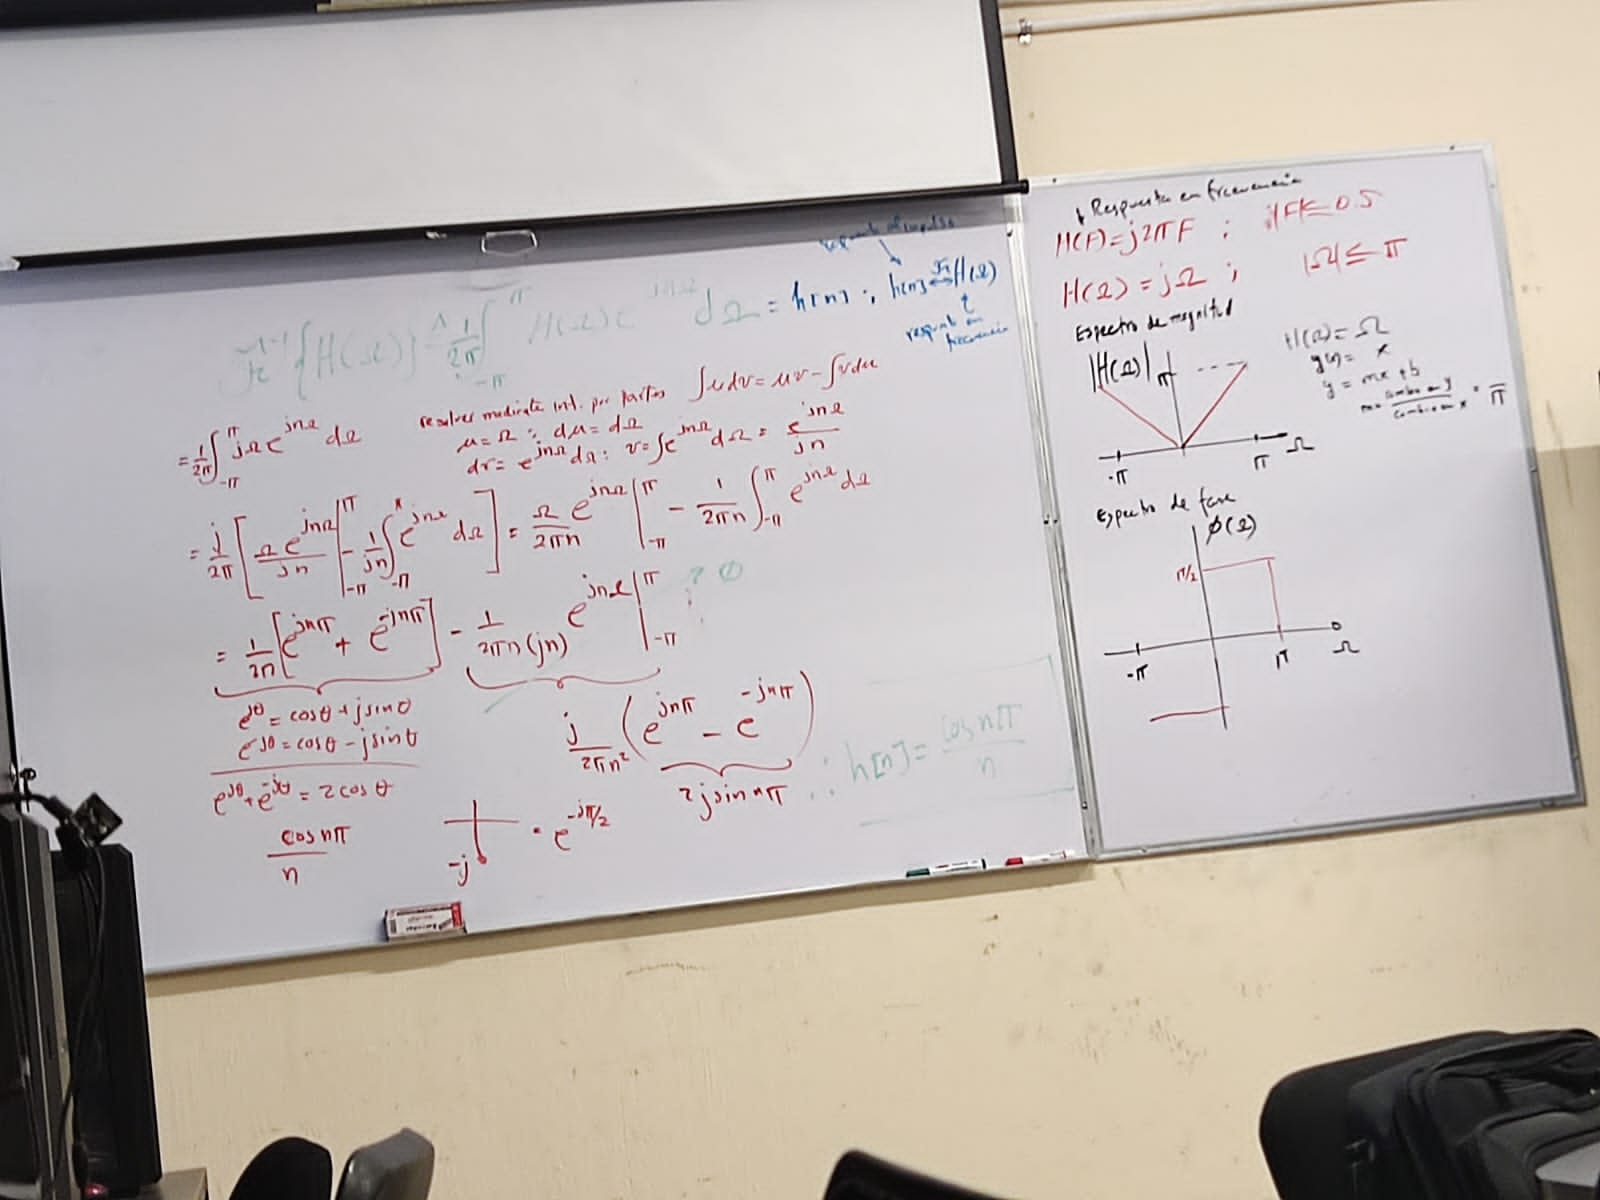 respuesta al impulso
F⁻¹{H(Ω)} ≜ 1/2π ∫_{-π}^{π} H(Ω) e^{jnΩ} dΩ = h[n] ; h[n] ↔ H(Ω)
respuesta en
frecuencia
= 1/2π ∫_{-π}^{π} jΩ e^{jnΩ} dΩ
resolver mediante int. por partes ∫udv = uv - ∫vdu
u = Ω ; du = dΩ
dv = e^{jnΩ} dΩ ; v = ∫e^{jnΩ} dΩ = e^{jnΩ}/jn
= j/2π [ Ω e^{jnΩ}/jn |_{-π}^{π} - 1/jn ∫_{-π}^{π} e^{jnΩ} dΩ ] = Ω/2πn e^{jnΩ} |_{-π}^{π} - 1/2πn ∫_{-π}^{π} e^{jnΩ} dΩ
= 1/2n [e^{jnπ} + e^{-jnπ}] - 1/2πn(jn) e^{jnΩ} |_{-π}^{π} ? 0
e^{jθ} = cosθ + jsinθ
e^{jθ} = cosθ - jsinθ
e^{jθ} + e^{-jθ} = 2cosθ
cos nπ/n
j/2πn² (e^{jnπ} - e^{-jnπ})
2jsin nπ
∴ h[n] = cos nπ/n
-j
= e^{-jπ/2}
Respuesta en frecuencia
H(F) = j2πF ; |F| ≤ 0.5
H(Ω) = jΩ ; |Ω| ≤ π
Espectro de magnitud
|H(Ω)| π
-π π Ω
H(Ω) = Ω
y(x) = x
y = mx + b
m = cambio en y/cambio en x = π
Espectro de fase
φ(Ω)
π/2
-π π Ω